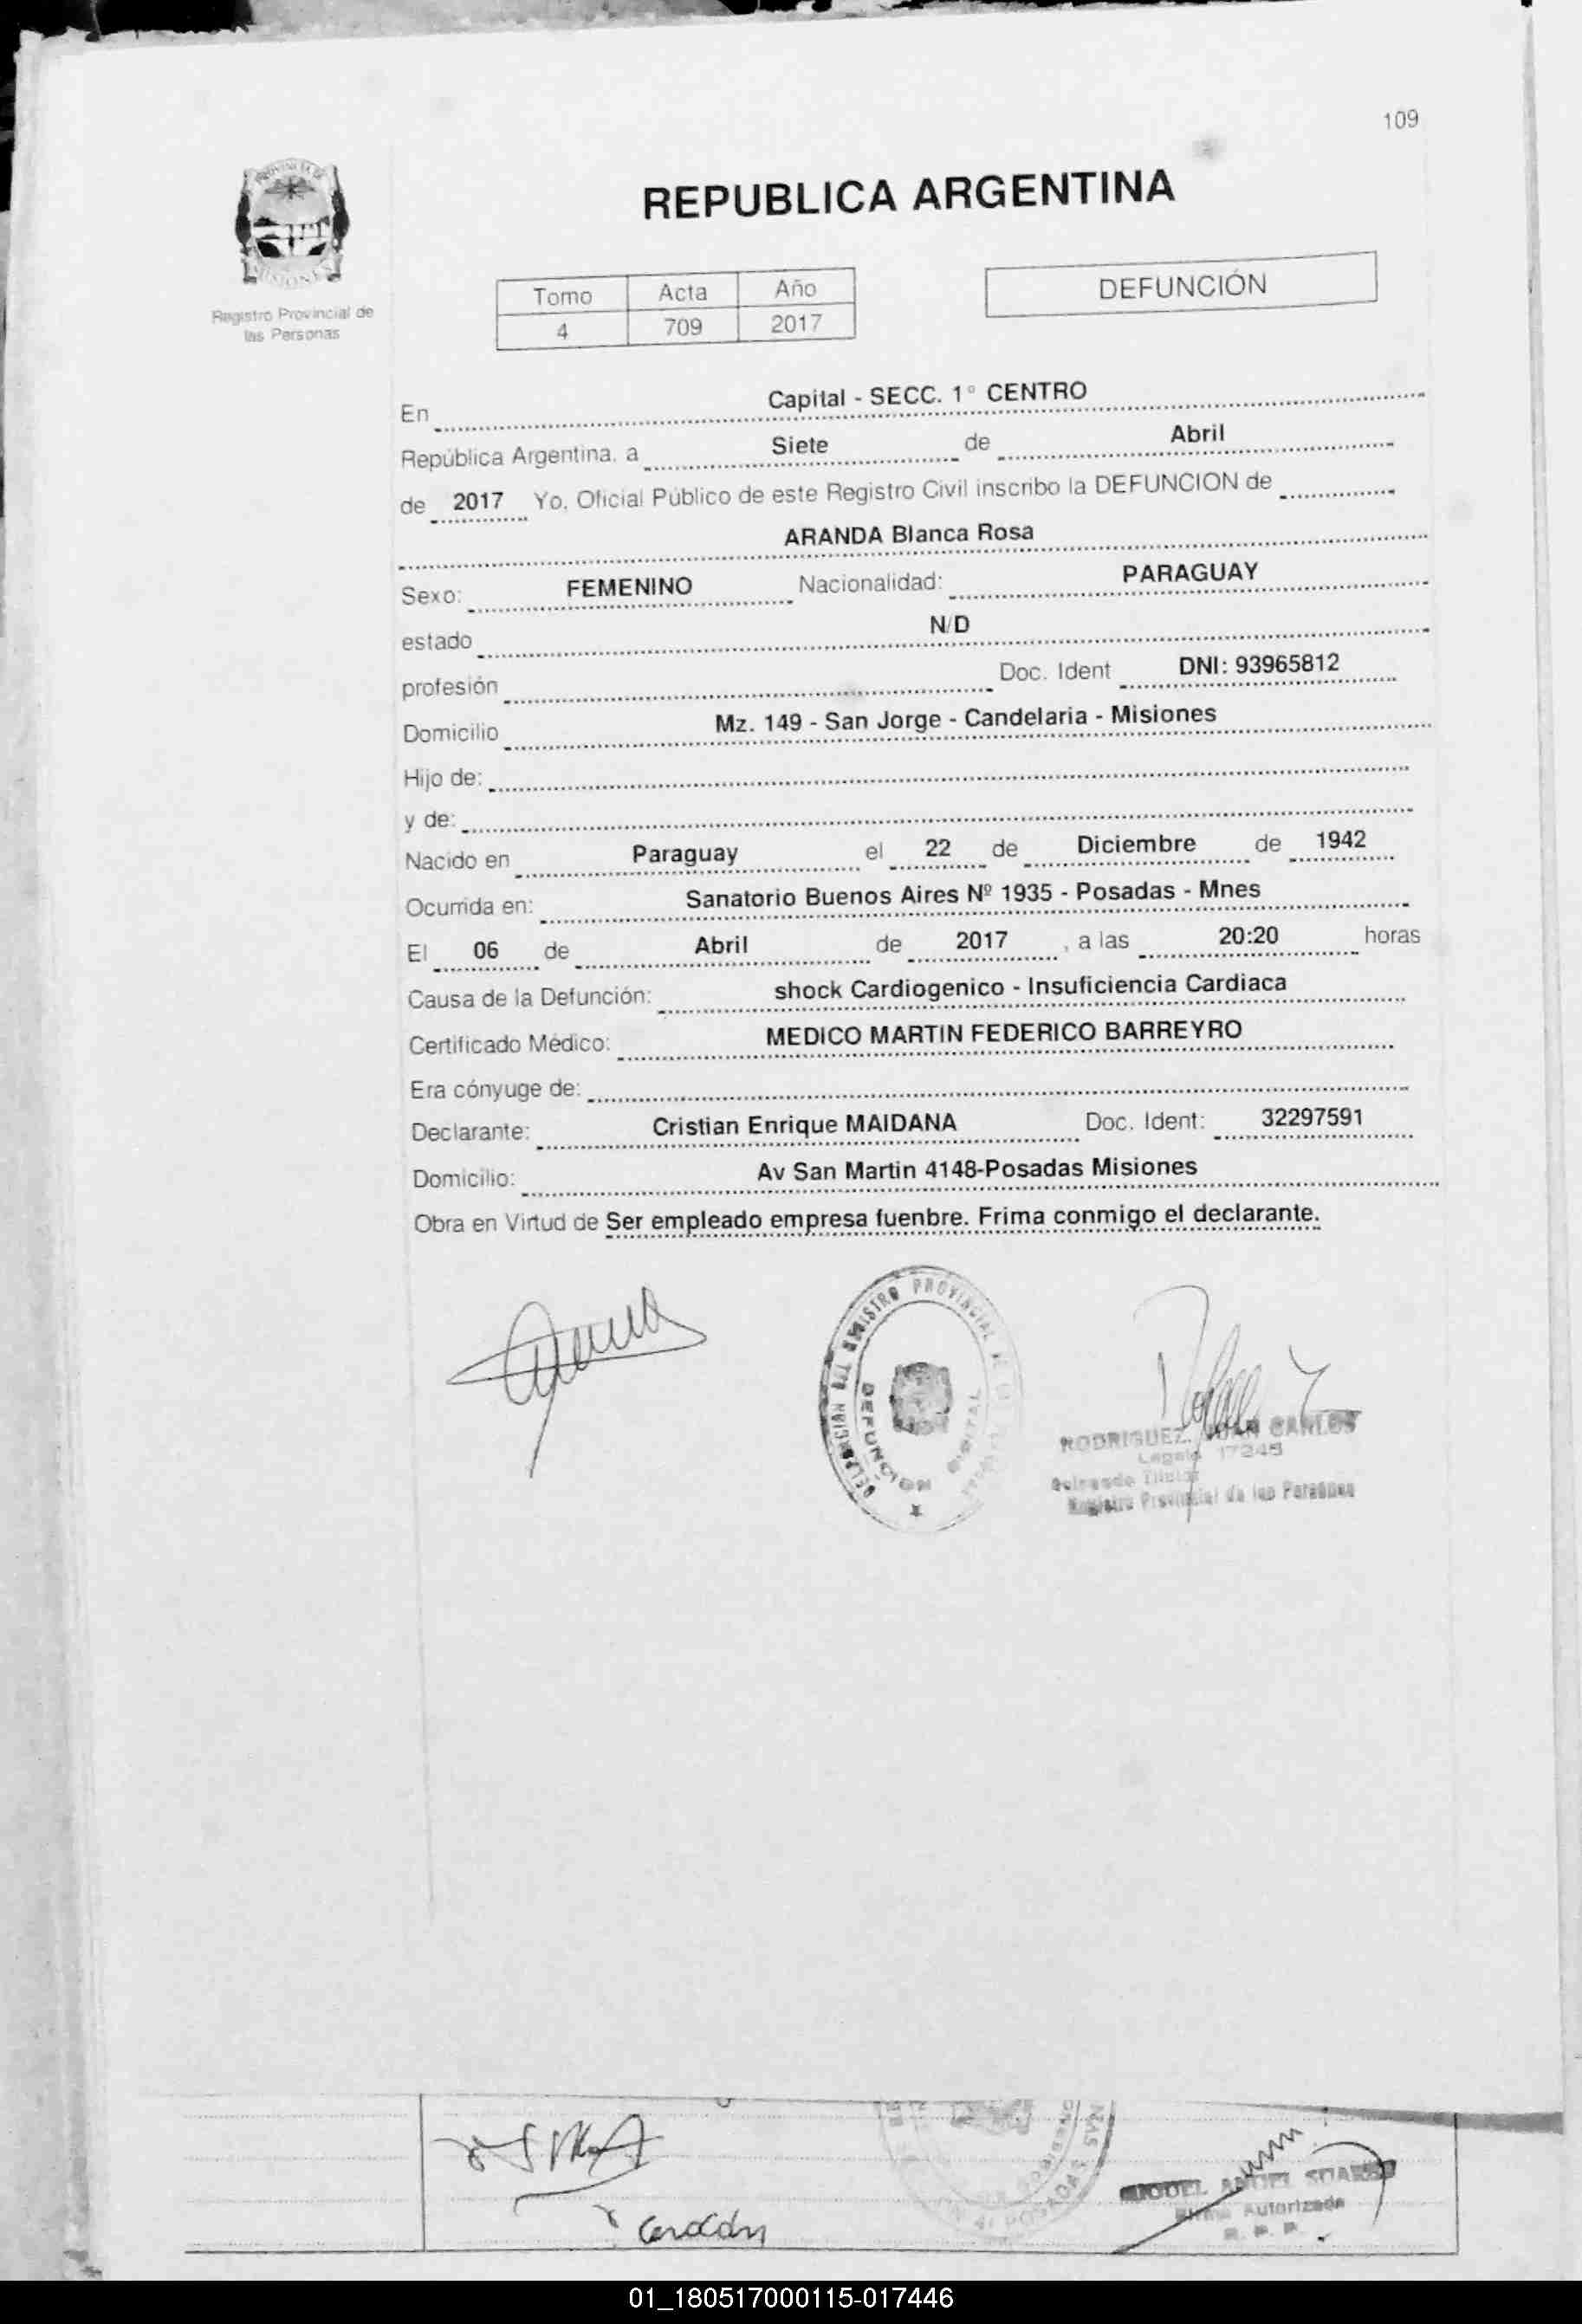 109
PROVINCIA DE
MISIONES
Registro Provincial de
las Personas
REPUBLICA ARGENTINA
Tomo Acta Año
4 709 2017
DEFUNCIÓN
En Capital - SECC. 1° CENTRO
República Argentina, a Siete de Abril
de 2017 Yo, Oficial Público de este Registro Civil inscribo la DEFUNCION de
ARANDA Blanca Rosa
Sexo: FEMENINO Nacionalidad: PARAGUAY
estado N/D
profesión Doc. Ident DNI: 93965812
Domicilio Mz. 149 - San Jorge - Candelaria - Misiones
Hijo de:
y de:
Nacido en Paraguay el 22 de Diciembre de 1942
Ocurrida en: Sanatorio Buenos Aires Nº 1935 - Posadas - Mnes
El 06 de Abril de 2017 , a las 20:20 horas
Causa de la Defunción: shock Cardiogenico - Insuficiencia Cardiaca
Certificado Médico: MEDICO MARTIN FEDERICO BARREYRO
Era cónyuge de:
Declarante: Cristian Enrique MAIDANA Doc. Ident: 32297591
Domicilio: Av San Martin 4148-Posadas Misiones
Obra en Virtud de Ser empleado empresa fuenbre. Frima conmigo el declarante.
PROVINCIAL
DEFUNCIÓN DIGITAL
RODRIGUEZ, JUAN CARLOS
Legajo 17245
Registro Provincial de las Personas
POSADAS
MIGUEL ANGEL SUAREZ
Firma Autorizada
R. P. P.
01_180517000115-017446